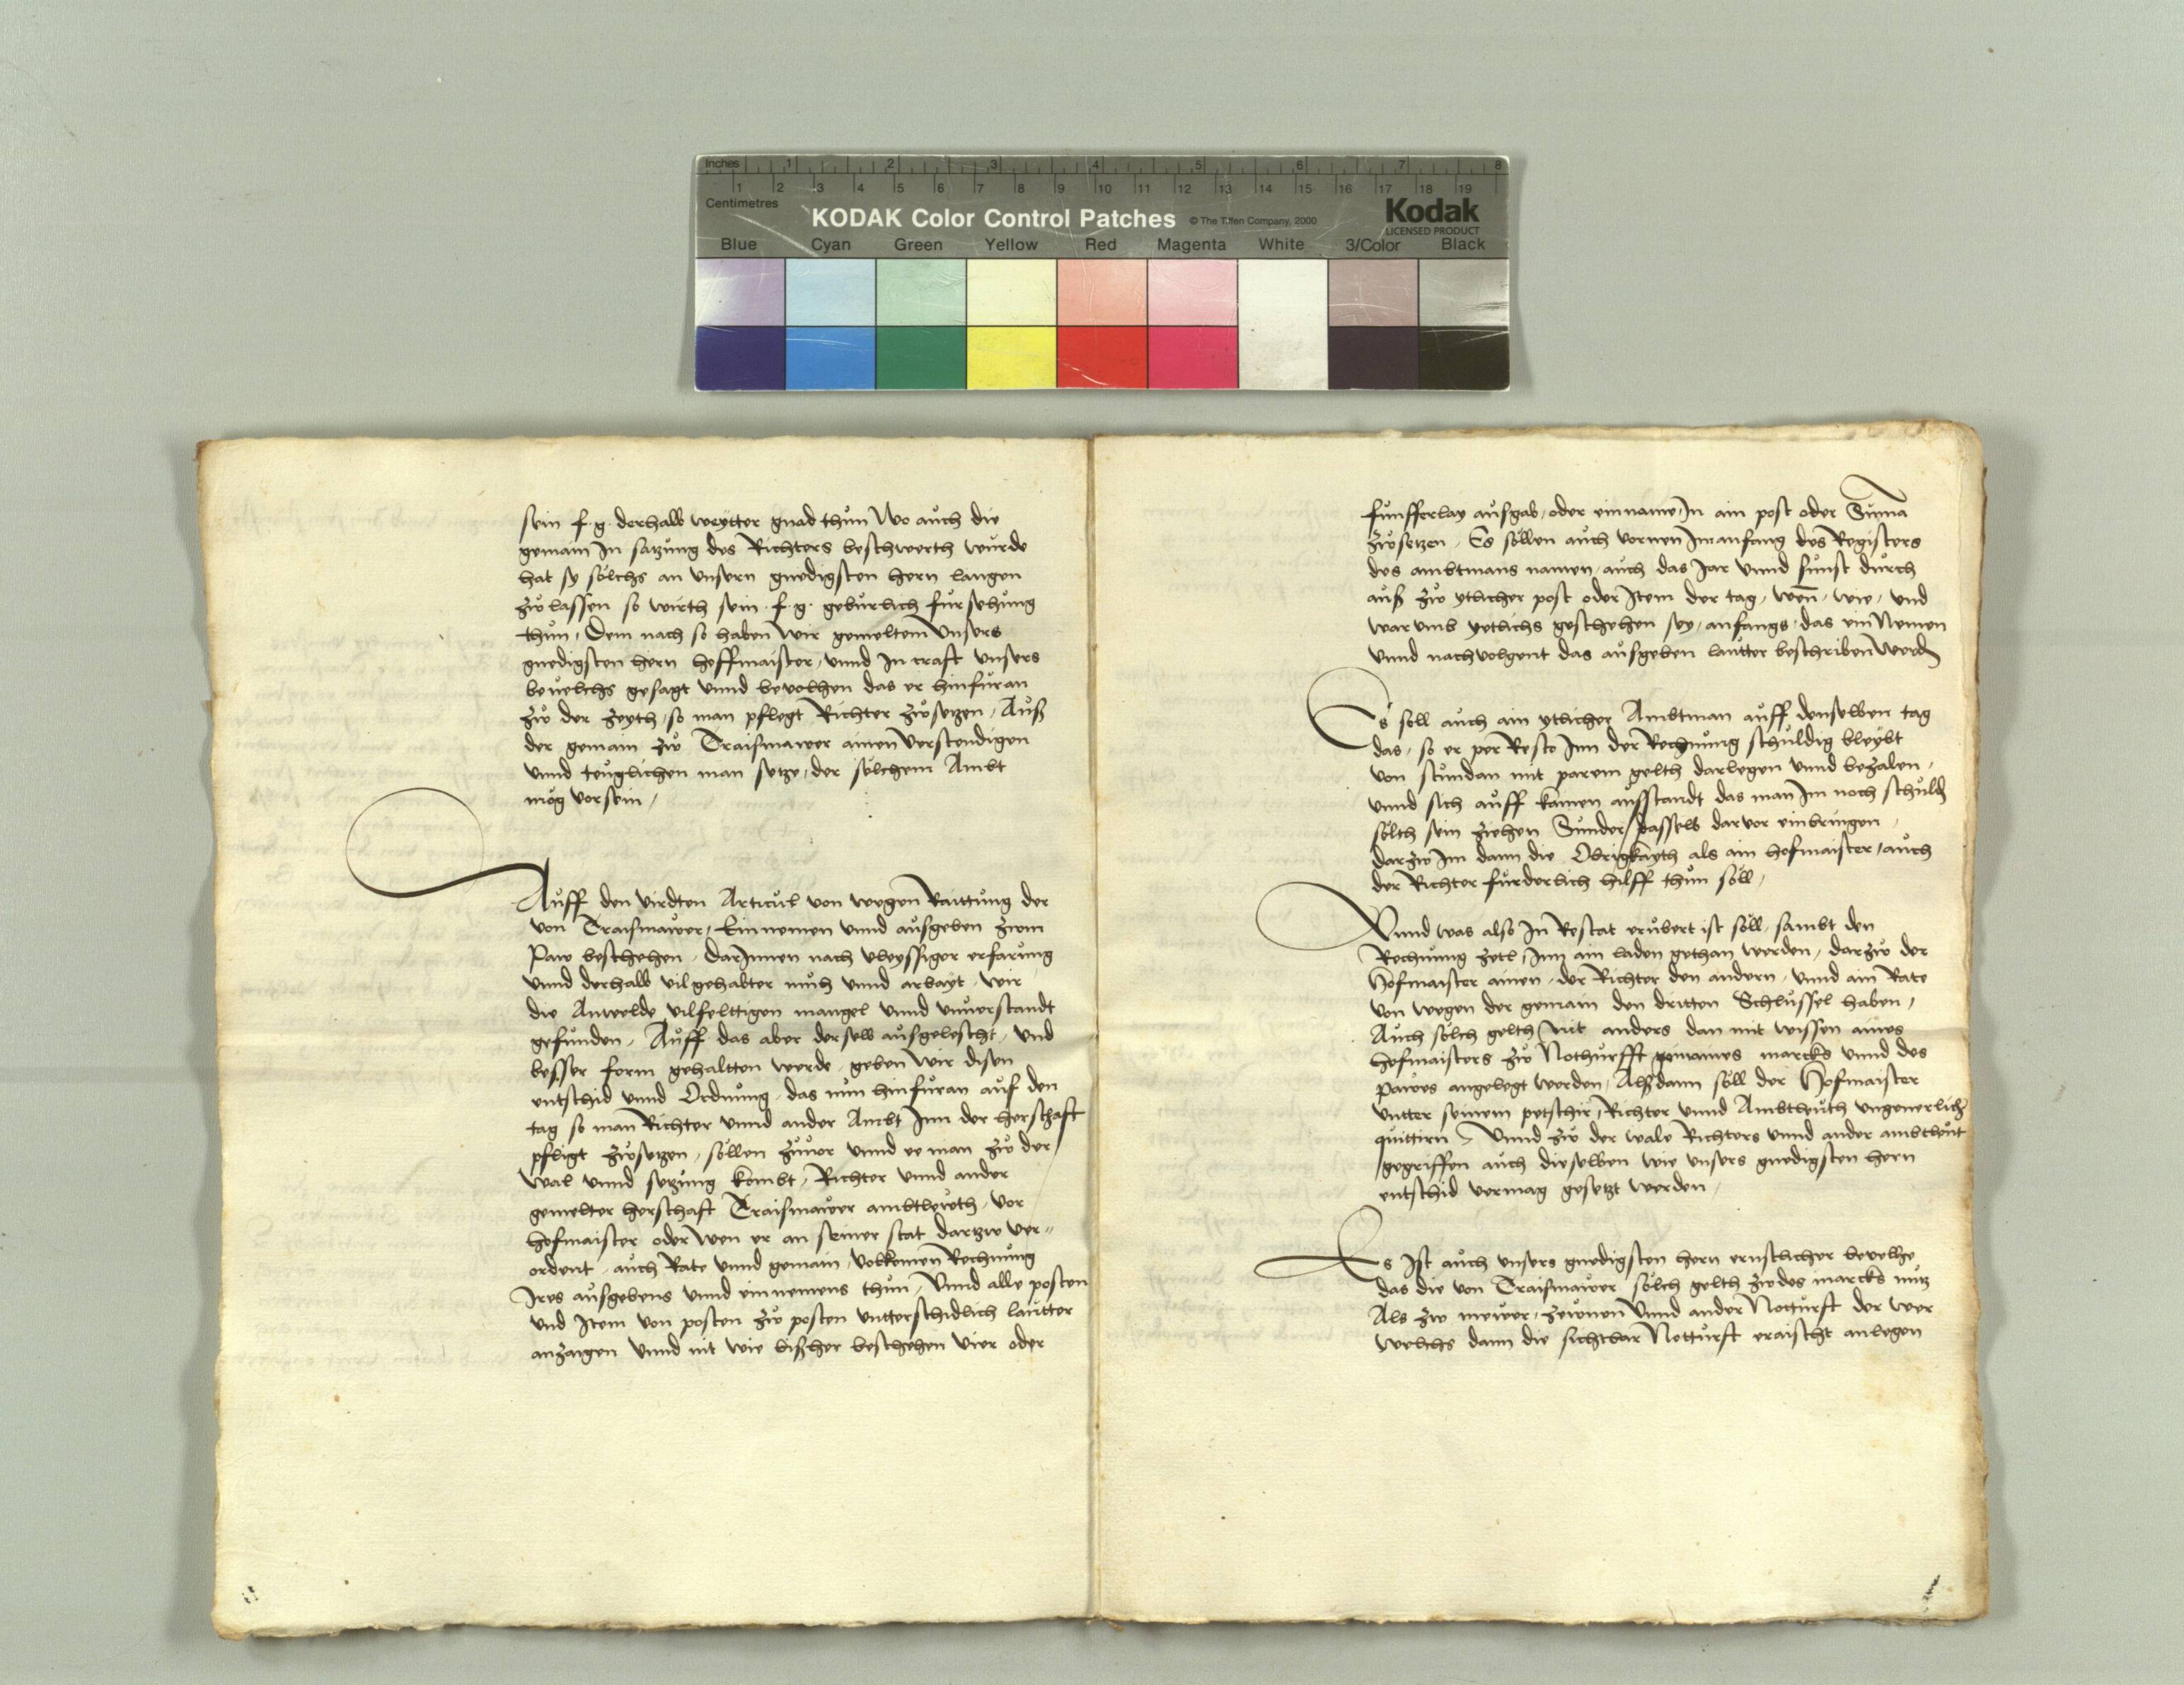 Inches 1 2 3 4 5 6 7 8
1 2 3 4 5 6 7 8 9 10 11 12 13 14 15 16 17 18 19
Centimetres
KODAK Color Control Patches © The Tiffen Company, 2000 Kodak
LICENSED PRODUCT
Blue Cyan Green Yellow Red Magenta White 3/Color Black
sein f. g. derhalb weytter gnad thůn Wo aůch die
gemain In satzůng des Richters beschwerth wůrde
hat sy sölchs an Vnsern gnedigsten hern langen
zůo lassen so wirth sein f. g. gebůrlich fůrsehůng
thůn, Dem nach so haben Wir gemeltem Vnsers
gnedigsten hern hoffmaister, vnnd In craft vnsers
bevelchs gesagt vnnd bevolhen das er hinfůran
zůo der Zeyth, so man pflegt Richter zůosetzen, Aůß
der gemain zůo Traismawer ainen Verstendigen
vnnd teůglichen man setze, der sölchem Ambt
mög vorsein,
Aůff den virdten Articůl von wegen Raittůng der
von Traismawer, Einnemen vnnd aůsgeben zwm
Paw beschehen, DarInnen nach vleyssiger erfarůng
vnnd derhalb vilgehabter můh vnnd arbayt, wir
die Anwelde vilfelttigen mangel vnnd vnůerstandt
gefůnden, Aůff das aber derselb aůsgelescht, vnd
besser form gehaltten werde, geben Wir disen
entschid vnnd Ordnůng, das nůn hinfůran aůf den
tag so man Richter vnnd ander Ambt Inn der herschaft
pfligt zůosetzen, söllen zůůor vnnd ee man zůo der
Wal vnnd setzůng kombt, Richter vnnd ander
gemelter herschaft Traismawer ambtlewth, vor
hofmaister oder wen er an seiner stat dartzw ver-
ordent, aůch Rate vnnd gemain, volkomen Rechnůng
Ires aůsgebens vnnd einnemens thůn, Vnnd alle posten
vnd Item von posten zůo posten vntterschidlich laůtter
anzaigen vnnd nit wie bißher beschehen vier oder
fůnfferlay aůsgab, oder einname, In ain post oder Suma
zůosetzen, Es söllen aůch vornen Im anfang des Registers
des ambtmans namen, aůch das Jar vnnd sůnst důrch
aůß zůo ytlicher post oder Item der tag, wen, wie, vnd
warůmb yetlichs geschehen sey, anfangs das einNemen
vnnd nachvolgent das aůsgeben laůtter beschriben werd
Es soll aůch ain ytlicher Ambtman aůff denselben tag
das, so er per Resto Inn der Rechnůng schůldig bleybt
von stůndan mit parem gelth darlegen vnnd bezalen,
vnnd sich aůff kainen aůsstandt das man Im noch schůld
sölth sein ziehen Sůnder dasselb darvor einbringen,
darzw Im dann die Obrigkayth als ain hofmaister, aůch
der Richter fůrderlich hilff thůn söll,
Vnnd was also In Restat erůbert ist söll, sambt den
Rechnůng zetl, Inn ain laden gethan werden, darzůo der
Hofmaister ainen, der Richter den andern, vnnd ain Rate
von wegen der gemain den dritten Schlůssel haben,
Aůch sölch gelth nit anders dan mit wissen aines
hofmaisters zůo Nothůrfft gemaines marckts vnnd des
pawes angelegt werden, Alßdann söll der Hofmaister
vntter seinem petschir, Richter vnnd Ambtleůth vngeuerlich
qůittirn, Vnnd zůo der wale Richters vnnd ander ambtleůt
gegriffen aůch dieselben wie vnsers gnedigsten hern
entschid vermag gesetzt werden,
Es Ist aůch vnsers gnedigsten hern ernstlicher bevelhe
das die von Traismawer sölch gelth zw des marckts nůtz
Als zw mewer, zewnen Vnnd ander Notturft der wer
welchs dann die sichtbar Notturft eraischt anlegen